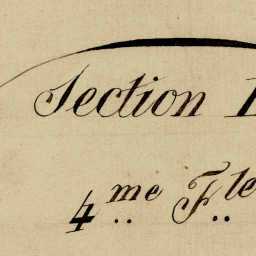 Section
4me Fle